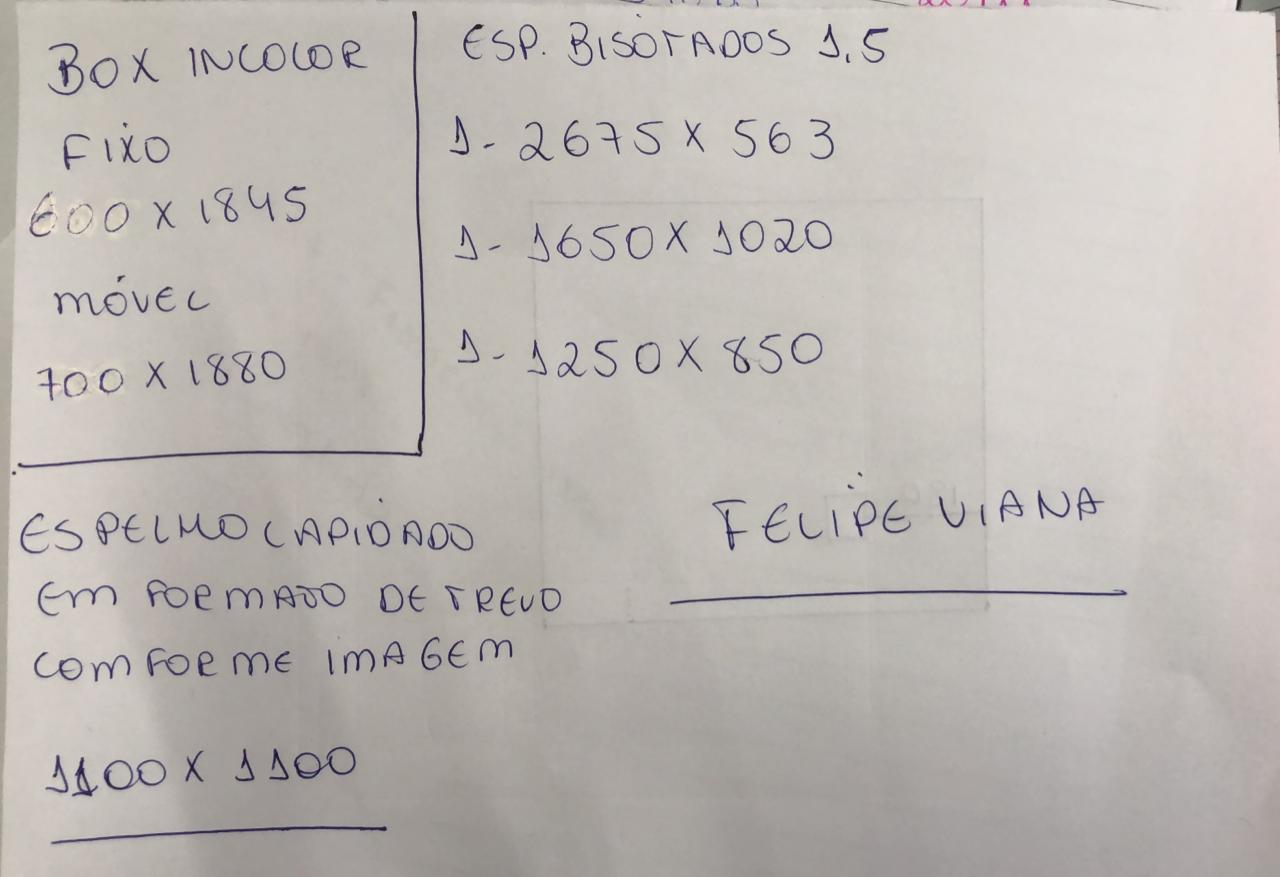 BOX INCOLOR
FIXO
600 X 1845
MÓVEL
700 X 1880
ESP. BISOTADOS 1,5
1- 2675 X 563
1- 1650 X 1020
1- 1250 X 850
ESPELHO LAPIDADO
EM FORMATO DE TREVO
COMFORME IMAGEM
1100 X 1100
FELIPE VIANA